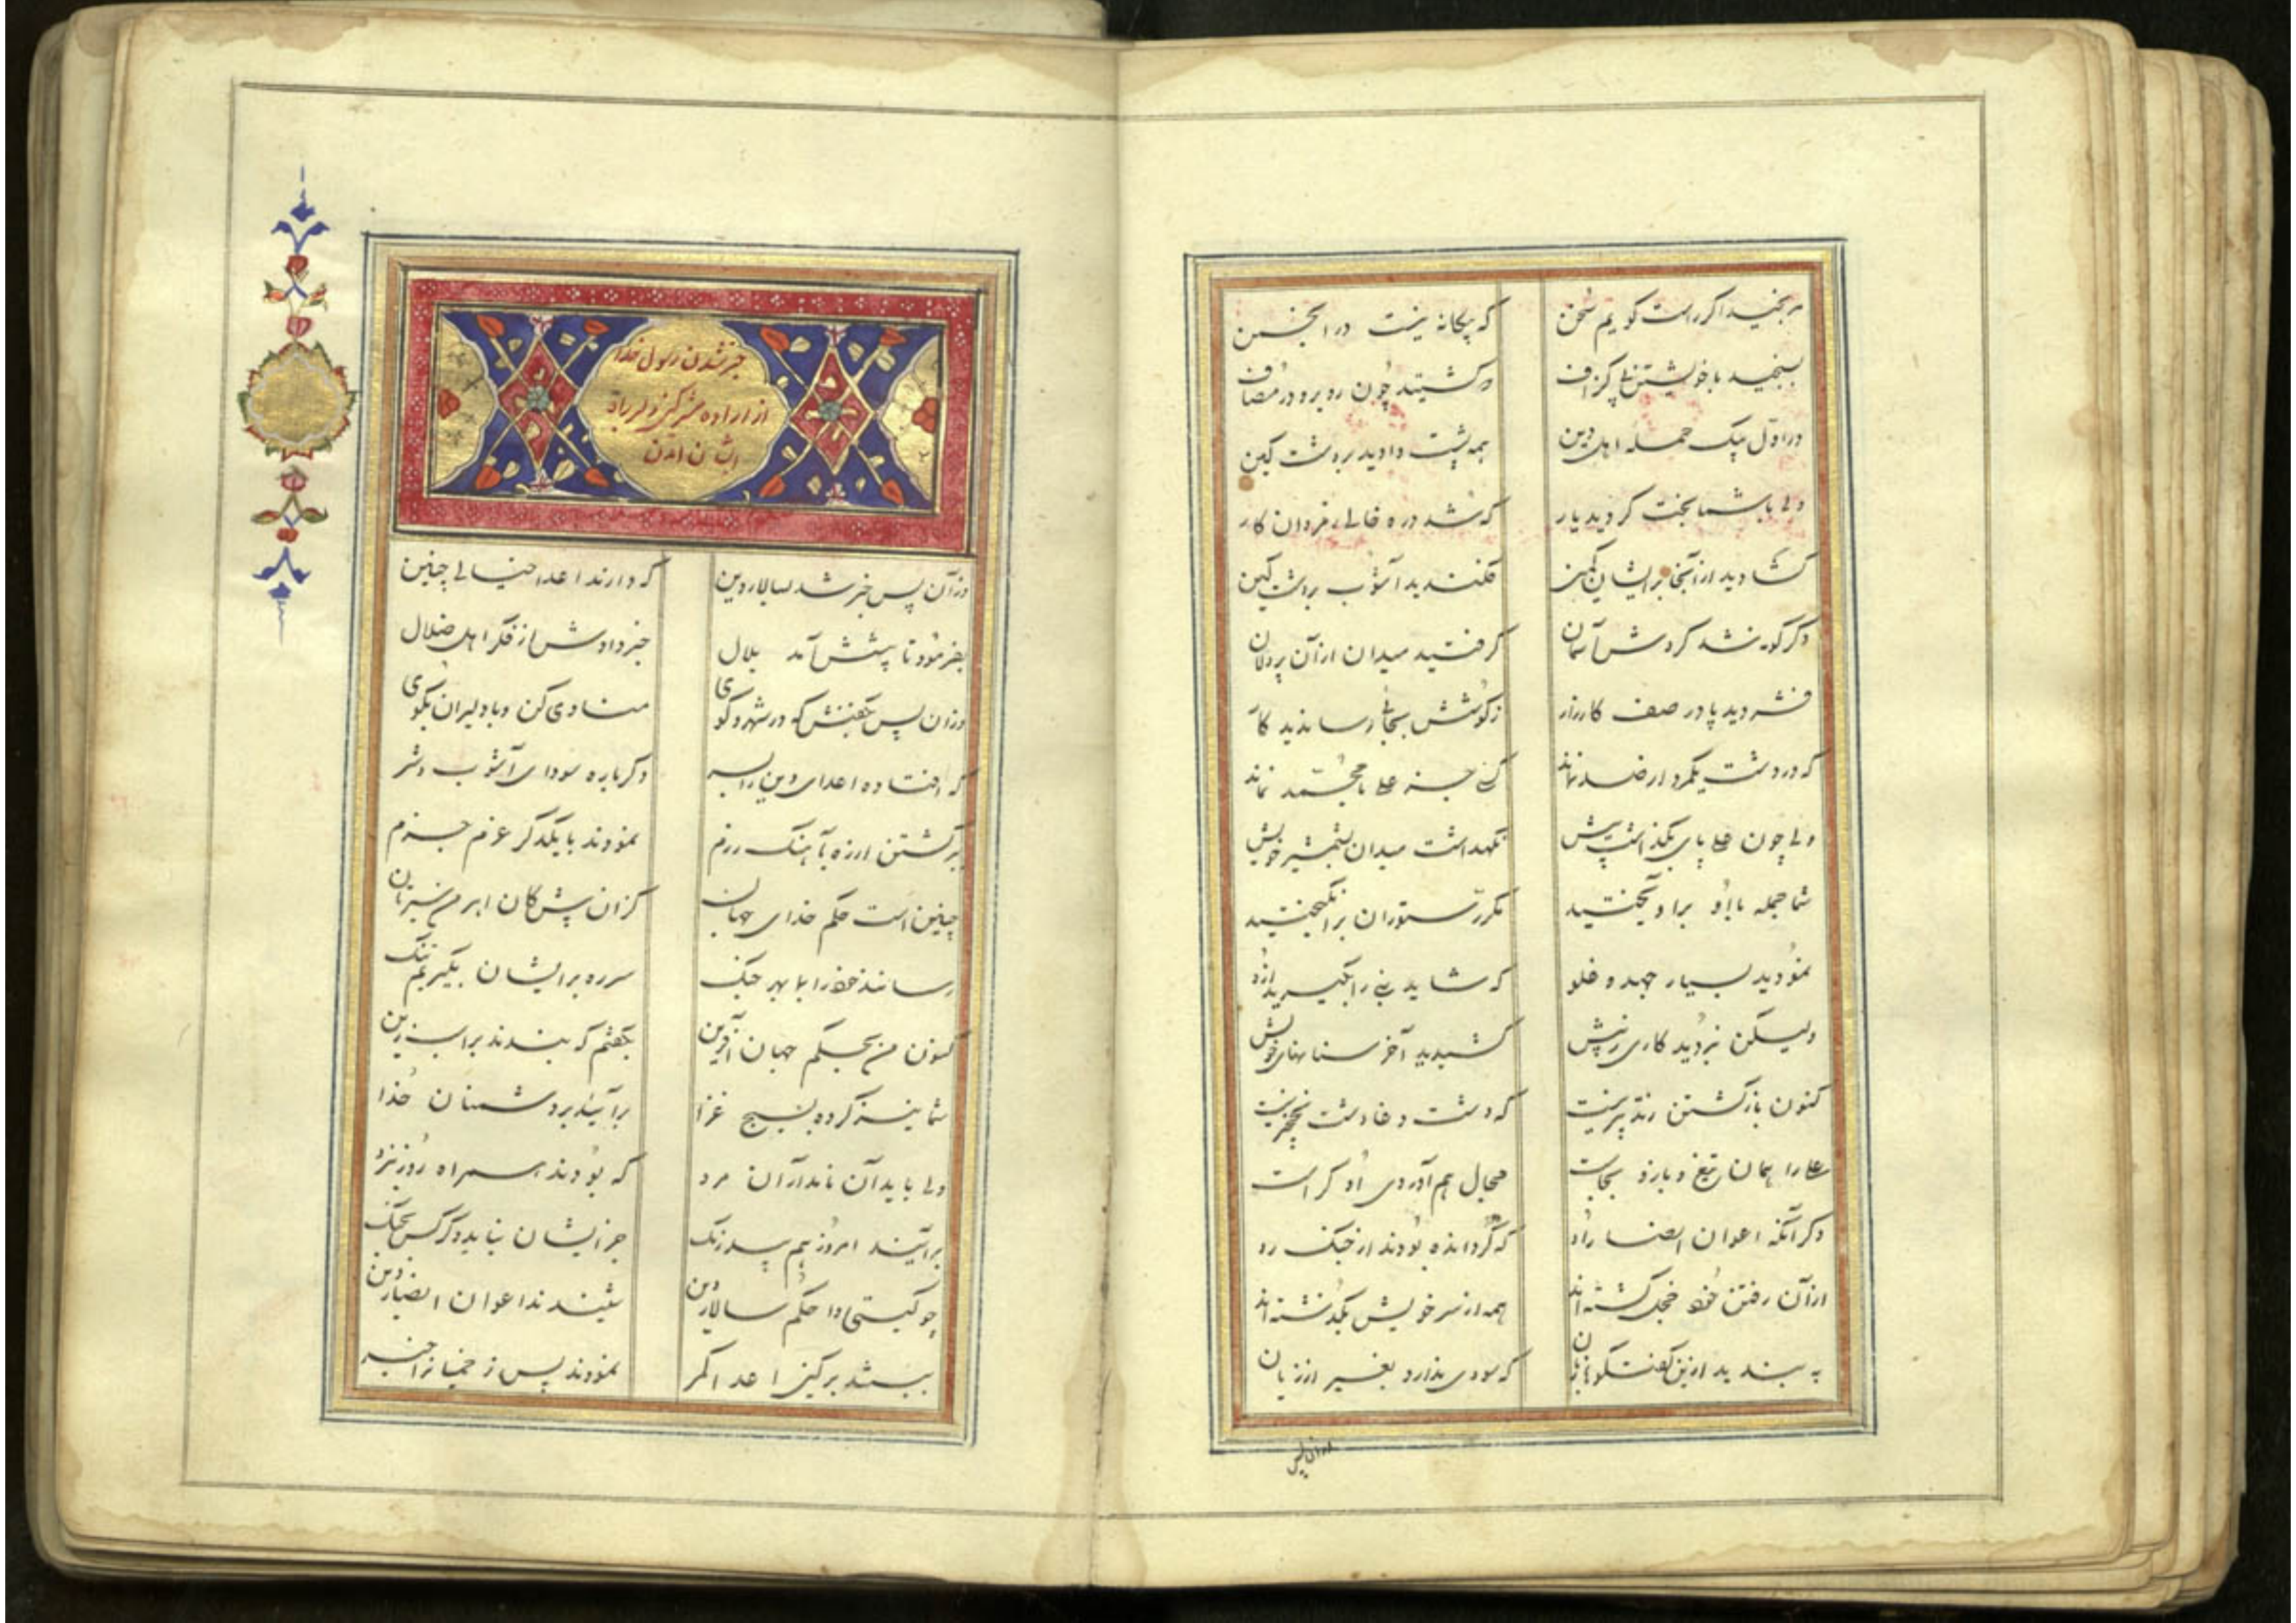 مرنجید اگر راست گویم سخن که بیگانه نیست در انجمن
بسنجید با خویشتن بی گزاف که گشتید چون روبرو در مصاف
در اول بیک حمله اهل دین همه پشت دادید بر دشت کین
ولی با شما بخت گردید یار که شد دره خالی ز مردان کار
گشادید از آنجا بر ایشان کمین فکندید آشوب بر دشت کین
دگرگونه شد گردش آسمان گرفتید میدان از آن پردلان
فشردید پا در صف کارزار ز کوشش بجائی رسانید کار
که در دشت یکمرد از صد نماند کسی جز علی با محمد نماند
ولی چون علی پای بگذاشت پیش نگهداشت میدان بشمشیر خویش
شما جمله با او بر آویختید مکرر ستوران برانگیختید
نمودید بسیار جهد و غلو که شاید نبی را بگیرید ازو
ولیکن نبردید کاری ز پیش کشیدید آخر سنانهای خویش
کنون بازگشتن ز تدبیر نیست که دشت وغا دشت نخچیر نیست
علی را همان تیغ و بازو بجاست مجال هم آوردی او کراست
دگر آنکه اعوان انصار او که گردانده بودند از جنگ رو
از آن رفتن خود خجل گشته اند همه از سر خویش بگذشته اند
به بندید ازین گفتگو زبان که سودی ندارد بغیر از زیان
وزان پس
خبر شدن رسول خدا
از اراده مشرکین و لرباه
ایشان آمدن
وزآن پس خبر شد بسالار دین که دارند اعدا خیالی چنین
بفرمود تا پیشش آمد بلال خبر دادش از فکر اهل ضلال
وزان پس بگفتش که در شهر و کوی منادی کن و با دلیران بگوی
که افتاده اعدای دین را بسر دگرباره سودای آشوب و شر
برگشتن از ره بآهنگ رزم نمودند با یکدگر عزم جزم
چنین است حکم خدای جهان کزان پیش کان ابرمن سیرتان
رسانند خود را بما بهر جنگ سر ره بر ایشان بگیریم تنگ
کنون من بحکم جهان آفرین بگفتم که بندند بر اسب زین
شما نیز کرده بسیج غزا برآیید بر دشمنان خدا
ولی باید آن نامداران مرد که بودند همراه روز نبرد
برآیند امروز هم بیدرنگ جز ایشان نیاید دگر کس بجنگ
چو گیتی دا حکم سالار دین شنیدند اعوان انصار دین
ببستند بر کین اعدا کمر نمودند پس زخمیانرا خبر